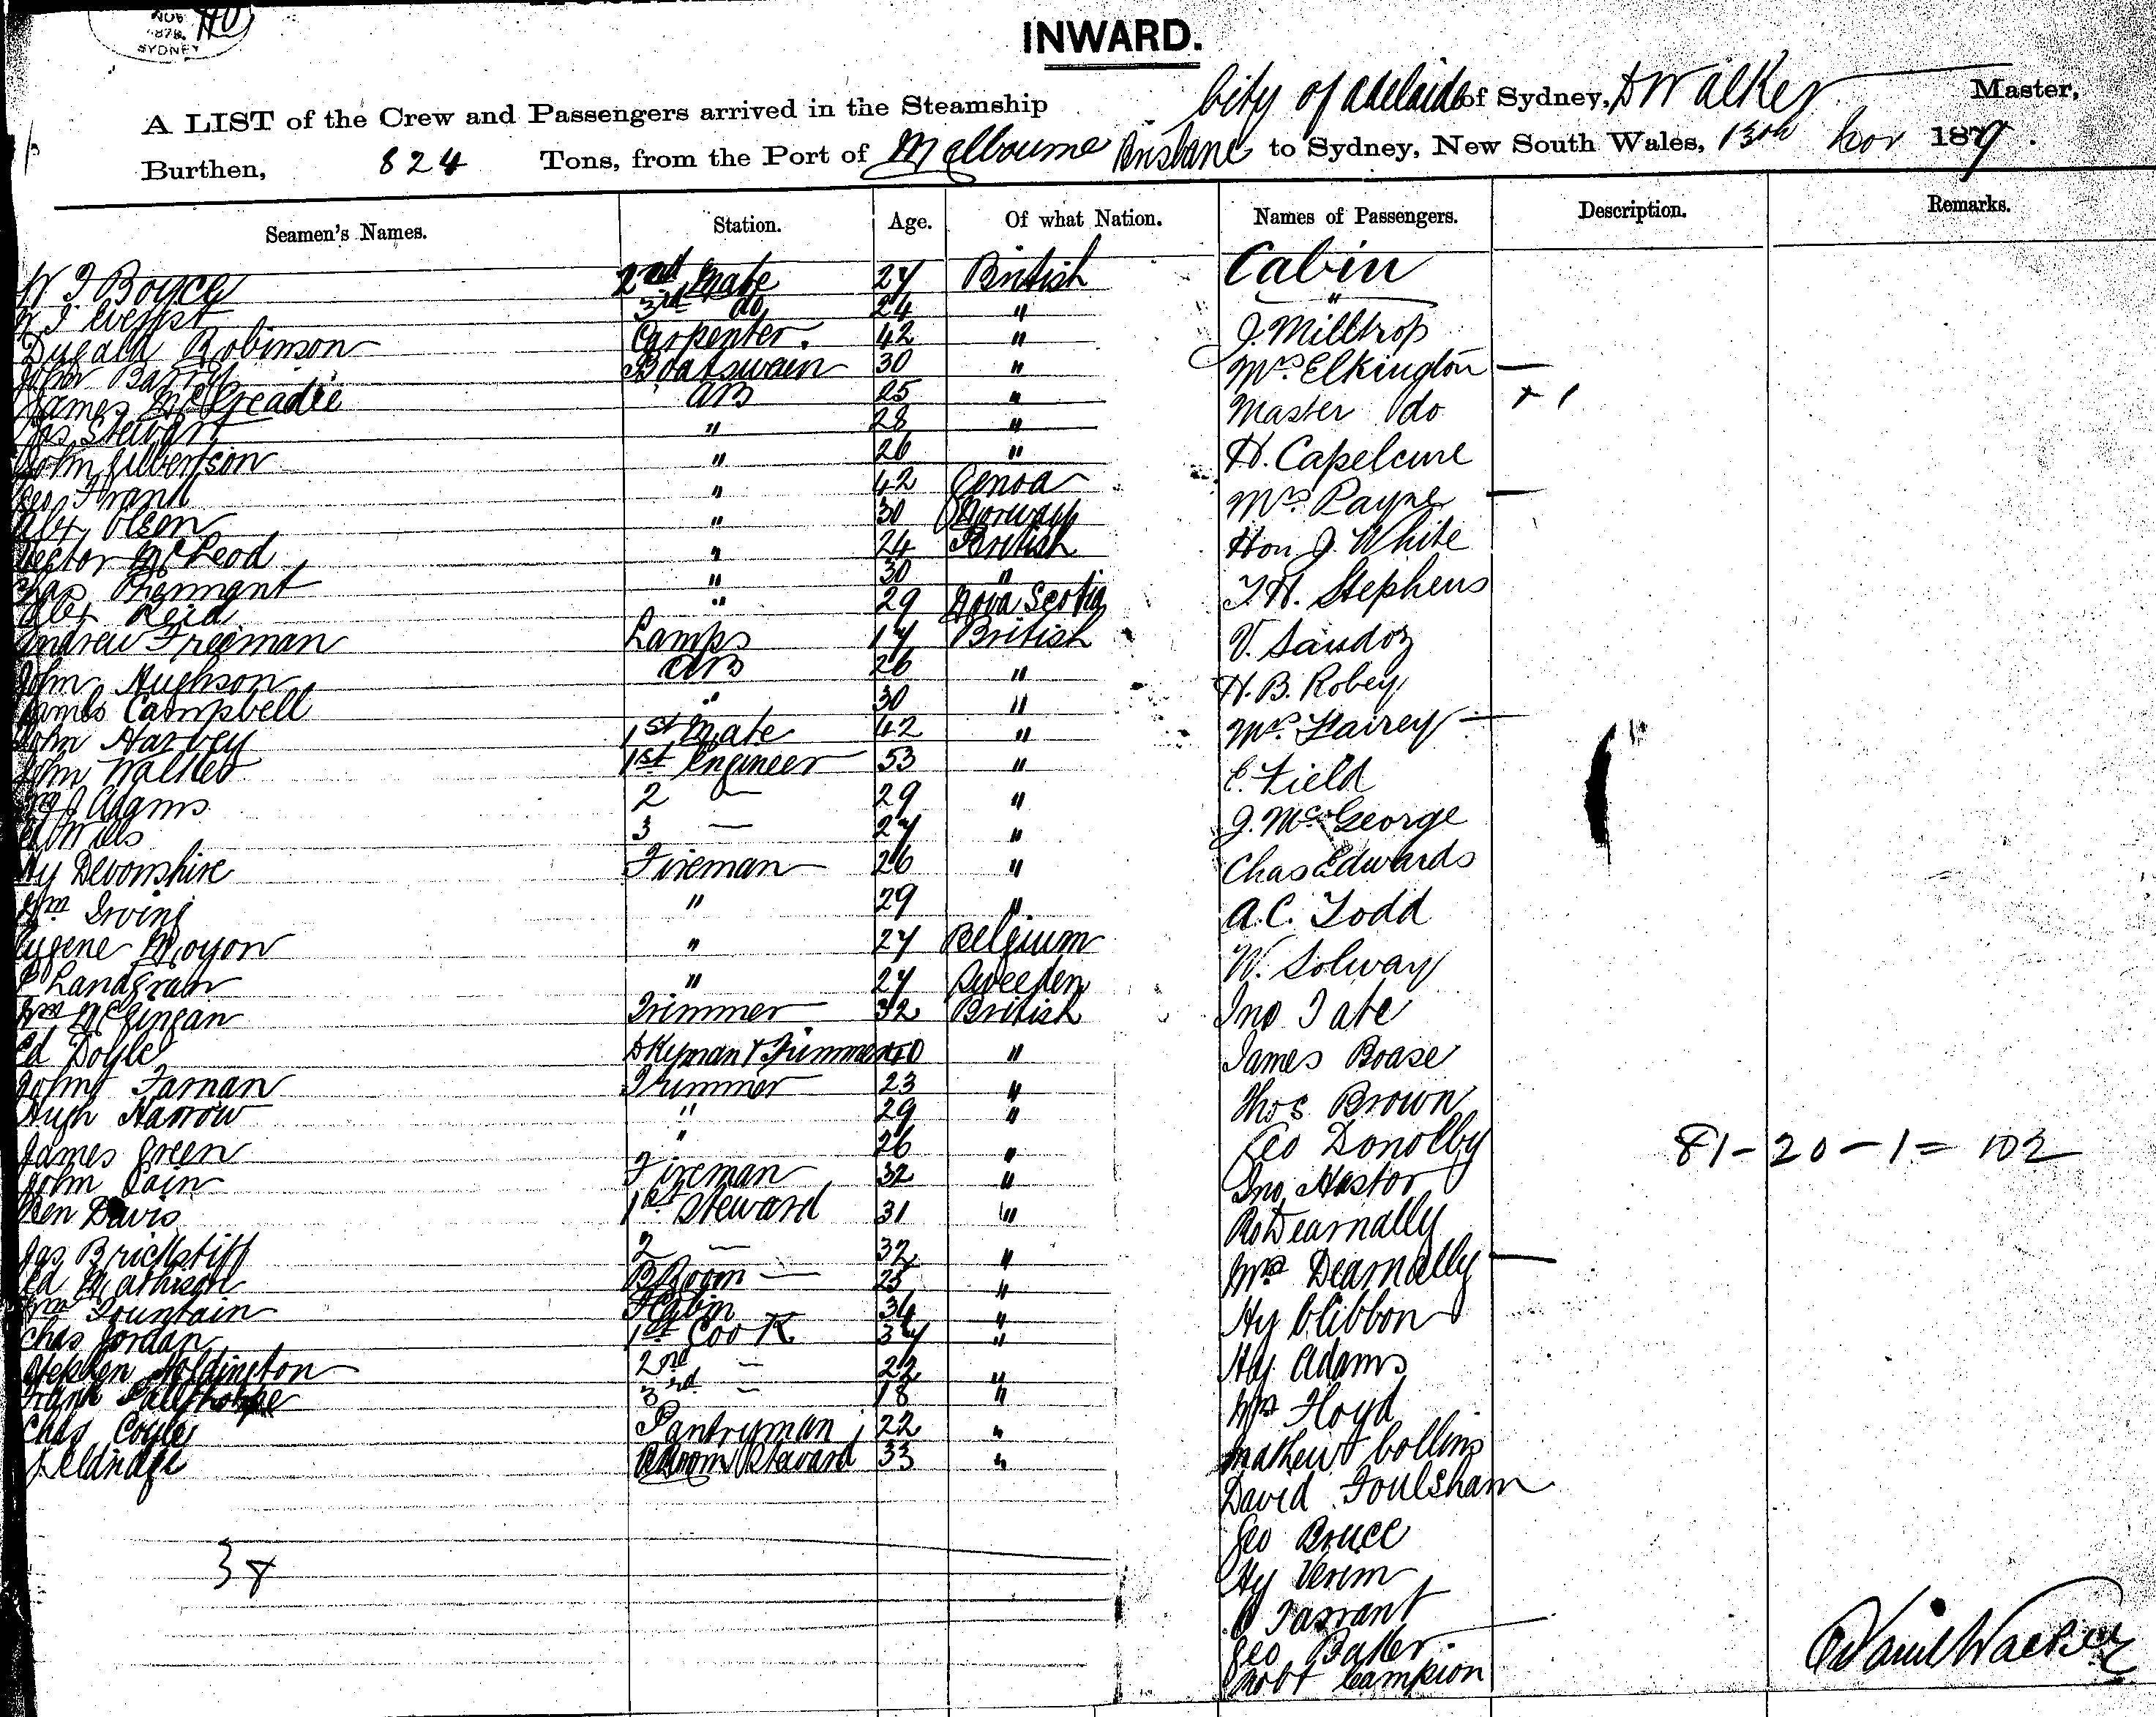 NOV
1878
SYDNEY
INWARD.
A LIST of the Crew and Passengers arrived in the Steamship City of Adelaide of Sydney, D Walker Master,
Burthen, 824 Tons, from the Port of Melbourne Brisbane to Sydney, New South Wales, 13th Nov 187
Seamen's Names. Station. Age. Of what Nation. Names of Passengers. Description. Remarks.
Cabin
Boyce 2nd Mate 27 British
3rd do 24 "
Dugald Robinson Carpenter. 42 " J. Milltrop
John Barry Boatswain 30 " Mrs. Elkington —
James McGreadie AB 25 " Master do
Jas Stewart " 28 "
John Gilbertson " 26 " H. Capelcure
Geo Frank " 42 Genoa
Alex Olsen " 30 Norway Mrs. Payne —
Hector McLeod " 24 British Hon J. White
Chas Tennant " 30 "
Alex Reid " 29 Nova Scotia T. H. Stephens
Andrew Freeman Lamps 17 British V. Sandoz
John Hughson AB 26 "
James Campbell " 30 " H. B. Robey
John Harvey 1st Mate 42 " Mrs. Fairey —
John Walker 1st Engineer 53 " E. Field
Adams 2 — 29 "
3 — 27 " J. McGeorge
Hy Devonshire Fireman 26 " Chas Edwards
Wm Irving " 29 " A. C. Todd
Eugene Moyon " 27 Belgium
Landgran " 27 Sweeden W. Solway
Wm Trimmer 32 British Jno Tate
Ed Doyle Dkyman & Trimmer 40 " James Boase
John Farnan Trimmer 23 "
Hugh Harrow " 29 " Thos Brown
James Green " 26 " Geo Donolby 81-20-1= 102
John Cain Fireman 32 " Jno Nastor
Ben Davis 1st Steward 31 " Dearnally
Jas Brickstiff 2 — 32 "
Ed Mathison B Room — 25 " Mrs Dearnally —
Wm Fountain 34 "
Chas Jordan 1st Cook 37 " Hy Clibbon
Stephen Holdington 2nd — 22 " Hy Adams
Frank 3rd — 18 " Floyd
Chas Coyle Pantryman 22 "
Eldridge Steward 33 " Mathew Collins
David Foulsham
Geo Bruce
38
Hy
Tarrant
Geo Baker.
Robt Campion
Daniel Walker